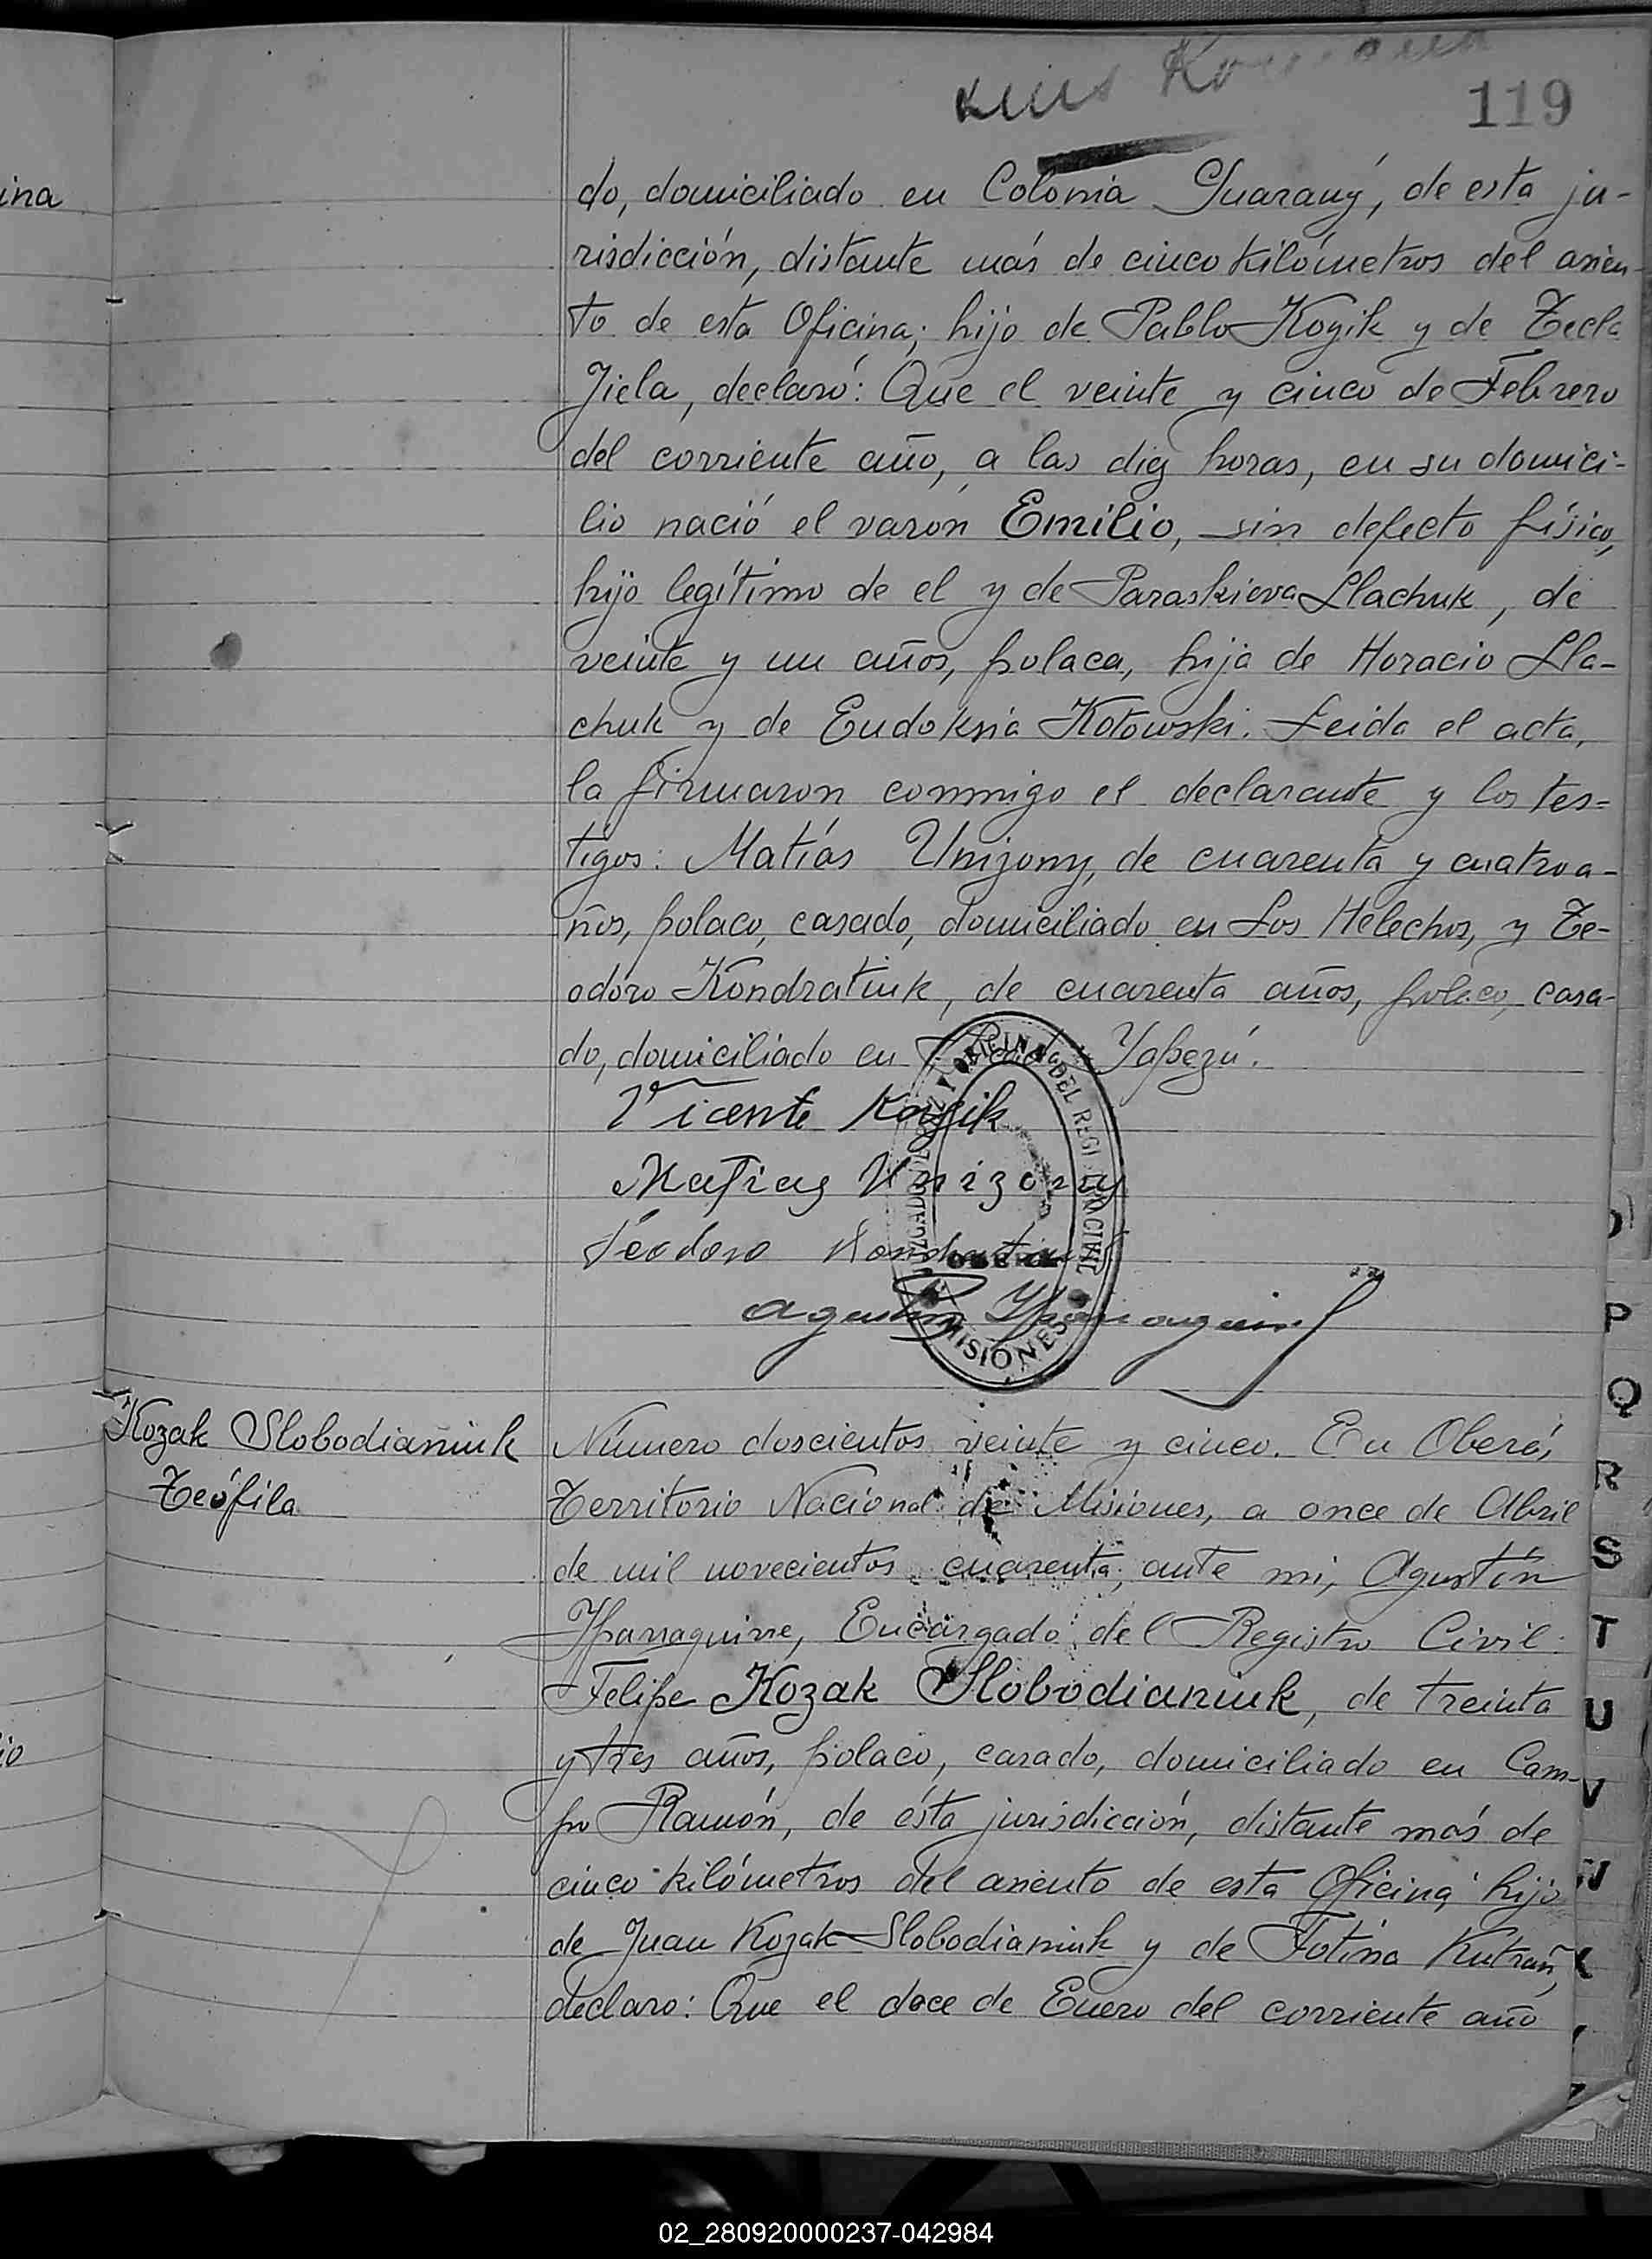 119
ina
do, domiciliado en Colonia Guarany, de esta ju-
risdicción, distante más de cinco kilómetros del asien-
to de esta Oficina; hijo de Pablo Kozik y de Tecla
Jiela, declaró: Que el veinte y cinco de Febrero
del corriente año, a las diez horas, en su domici-
lio nació el varón Emilio, sin defecto físico,
hijo legítimo de el y de Paraskieva Llachuk, de
veinte y un años, polaca, hija de Horacio Lla-
chuk y de Eudoksia Kotowski. Leida el acta,
la firmaron conmigo el declarante y los tes=
tigos: Matías Unizony, de cuarenta y cuatro a-
ños, polaco, casado, domiciliado en Los Helechos, y Te-
odoro Kondratiuk, de cuarenta años, polaco, casa-
do, domiciliado en Yapeyú.
Vicente Kozik
Matias Unizony
Teodoro Kondratiuk
Agustin Yparraguirre
JUZGADO DE PAZ Y OFICINA DEL REGISTRO CIVIL
OBERA
MISIONES
Kozak Slobodianiuk
Teófila
Número doscientos veinte y cinco. En Oberá,
Territorio Nacional de Misiones, a once de Abril
de mil novecientos cuarenta, ante mi, Agustín
Yparraguirre, Encargado del Registro Civil.
Felipe Kozak Slobodianiuk, de treinta
y tres años, polaco, casado, domiciliado en Cam-
po Ramón, de ésta jurisdicción, distante más de
cinco kilómetros del asiento de esta Oficina, hijo
de Juan Kozak Slobodianiuk y de Fotina Kutrañ,
declaro: Que el doce de Enero del corriente año
io
P
Q
R
S
T
U
V
02_280920000237-042984